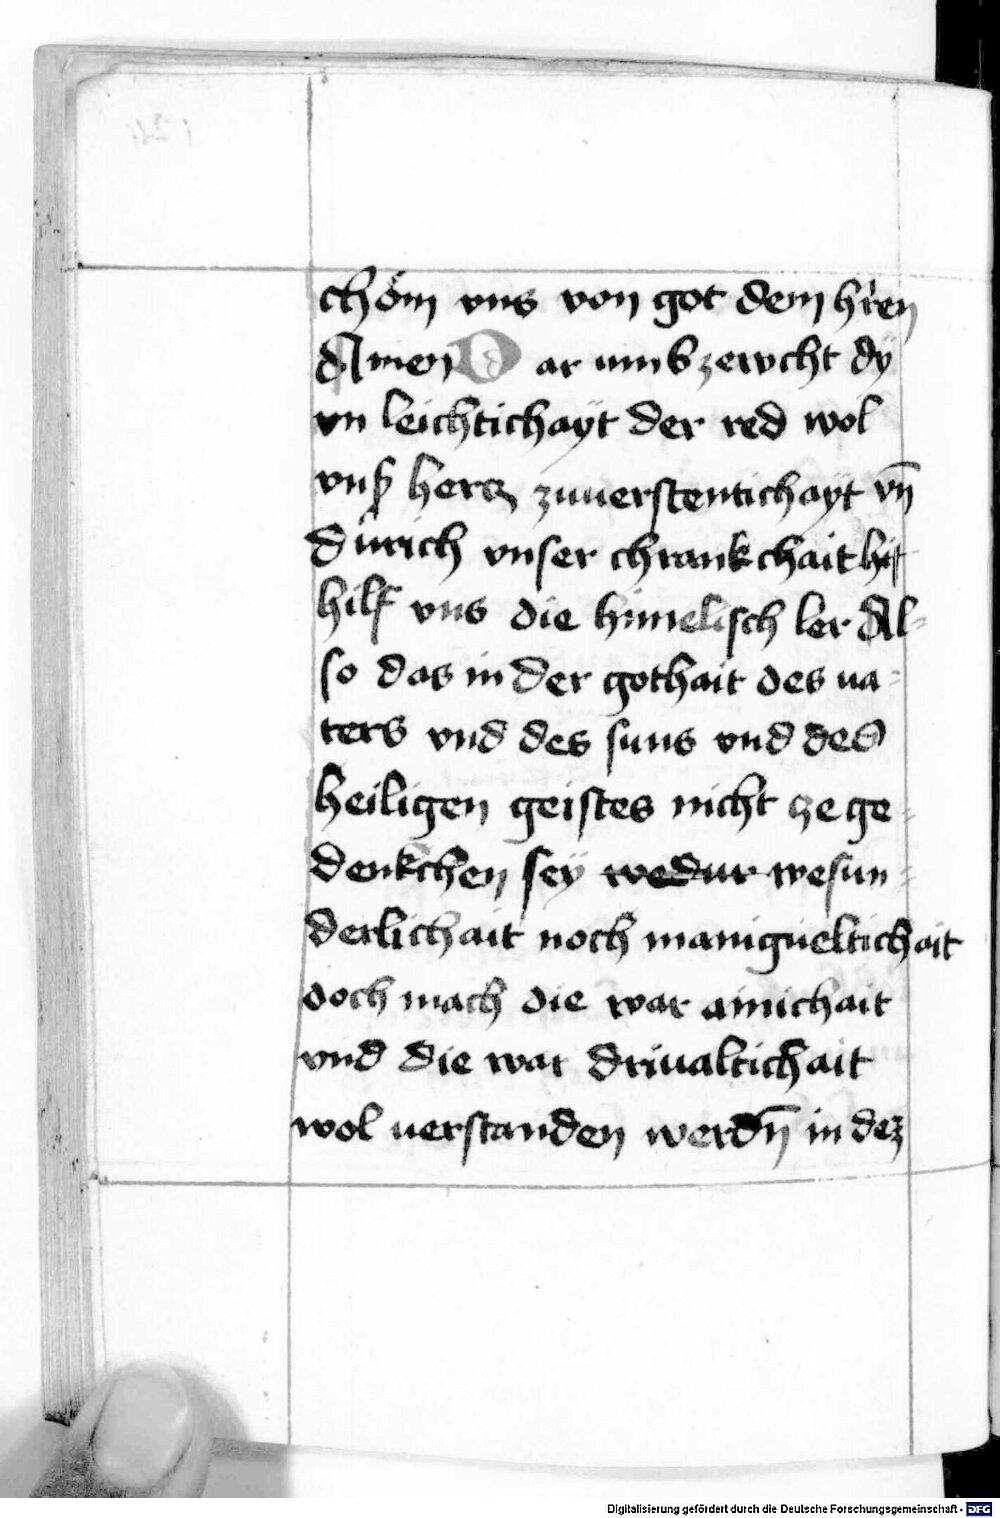 chöm vns von got dem hr̄en
Amen Dar umb zewcht dÿ
vn leichtichaÿt der red wol
vnß hercz zuuerstentichaÿt vn̄
durich vnser chrankchait
hilf vns die himelisch ler Al-
so das in der gothait des ua-
ters vnd des suns vnd des
heiligen geistes nicht ze ge-
denkchen seÿ wesun-
derlichait noch manigueltichait
doch mach die war ainichait
vnd die war driualtichait
wol uerstanden werdn̄ in dez
Digitalisierung gefördert durch die Deutsche Forschungsgemeinschaft - DFG